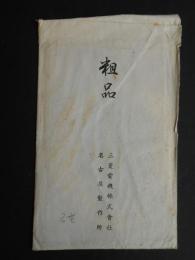 粗品
三菱電機株式會社
名古屋製作所